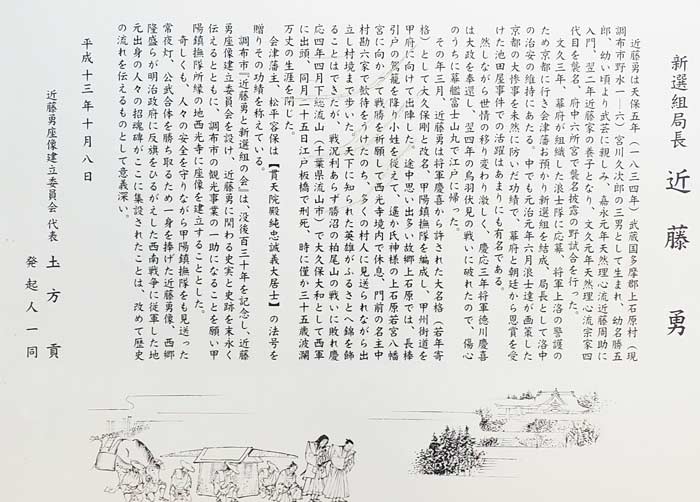 新選組局長 近藤 勇
近藤勇は天保五年(一八三四年)武蔵国多摩郡上石原村(現
調布市野水一―六)宮川久次郎の三男として生まれ、幼名勝五
郎、幼い頃より武芸に親しみ、嘉永元年天然理心流近藤周助に
入門、翌二年近藤家の養子となり、文久元年天然理心流宗家四
代目を襲名、府中六所宮で襲名披露の野試合を行った。
文久三年、幕府が組織した浪士隊に応募、将軍上洛の警護の
ため京都に行き会津藩お預かり新選組を結成、局長として洛中
の治安の維持にあたる。中でも元治元年六月浪士達が画策した
京都の大惨事を未然に防いだ功績で、幕府と朝廷から恩賞を受
けた池田屋事件での活躍はあまりにも有名である。
然しながら世情の移り変わり激しく、慶応三年将軍徳川慶喜
は大政を奉還し、翌四年の鳥羽伏見の戦いに破れたので、傷心
のうちに幕艦富士山丸で江戸に帰った。
その年三月、近藤勇は将軍慶喜から許された大名格(若年寄
格)として大久保剛と改名、甲陽鎮撫隊を編成し、甲州街道を
甲府に向けて出陣した。途中思い出多い故郷上石原では、長棒
引戸の駕籠を降り小姓を従えて、遥か氏神様の上石原若宮八幡
宮に向かって戦勝を祈願して西光寺境内で休息、門前の名主中
村勘六家で歓待をうけたのち、多くの村人に見送られながら出
立し村境まで歩いた。天下に知られた英雄がふるさとへ錦を飾
ることはできたが、戦況利あらず勝沼の柏尾山の戦いに敗れ慶
応四年四月下総流山(千葉県流山市)で大久保大和として西軍
に出頭、同月二十五日江戸板橋で刑死、時に僅か三十五歳波瀾
万丈の生涯を閉じた。
会津藩主、松平容保は【貫天院殿純忠誠義大居士】の法号を
贈りその功績を称えている。
調布市『近藤勇と新選組の会』は、没後百三十年を記念し、近藤
勇座像建立委員会を設け、近藤勇に関わる史実と史跡を末永く
伝えるとともに、調布市の観光事業の一助になることを願い甲
陽鎮撫隊所縁の地西光寺に座像を建立することとした。
奇しくも、人々の安全を守りながら甲陽鎮撫隊をも見送った
常夜灯、公武合体を勝ち取るため一身を捧げた近藤勇像、西郷
隆盛らが明治政府に反旗をひるがえした西南戦争に従軍した地
元出身の人々の招魂碑がここに集設されたことは、改めて歴史
の流れを伝えるものとして意義深い。
平成十三年十月八日
近藤勇座像建立委員会 代表 土方 貢
発起人一同